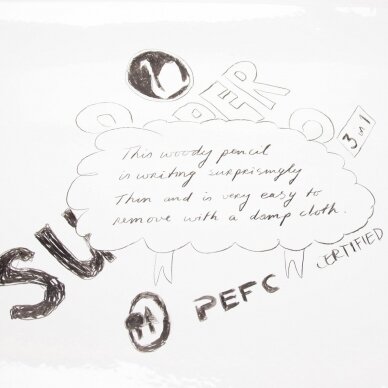 PER
3 in 1
This woody pencil
is writing surprisingly
Thin and is very easy to
remove with a damp cloth.
SU
PEFC
CERTIFIED